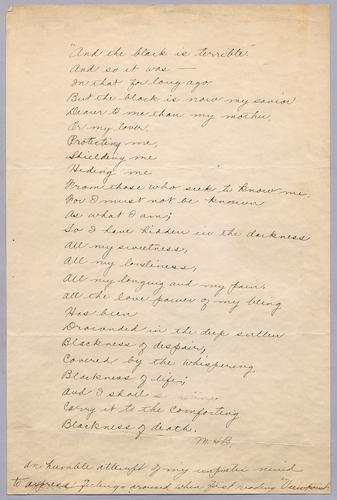 "And the black is terrible."
And so it was —
In that far long ago
But the black is now my savior
Dearer to me than my mother,
Or my lover.
Protecting me,
Shielding me
Hiding me
From those who seek to know me
For I must not be known
As what I am;
So I have hidden in the darkness
All my sweetness,
All my loveliness,
All my longing and my pain;
All the love power of my being
Has been
Drownded in the deep sullen
Blackness of despair,
Covered by the whispering
Blackness of life;
And I shall
Carry it to the comforting
Blackness of death.
M.H.B.
An humble attempt of my mind
to express feelings aroused when first reading "Viewpoint